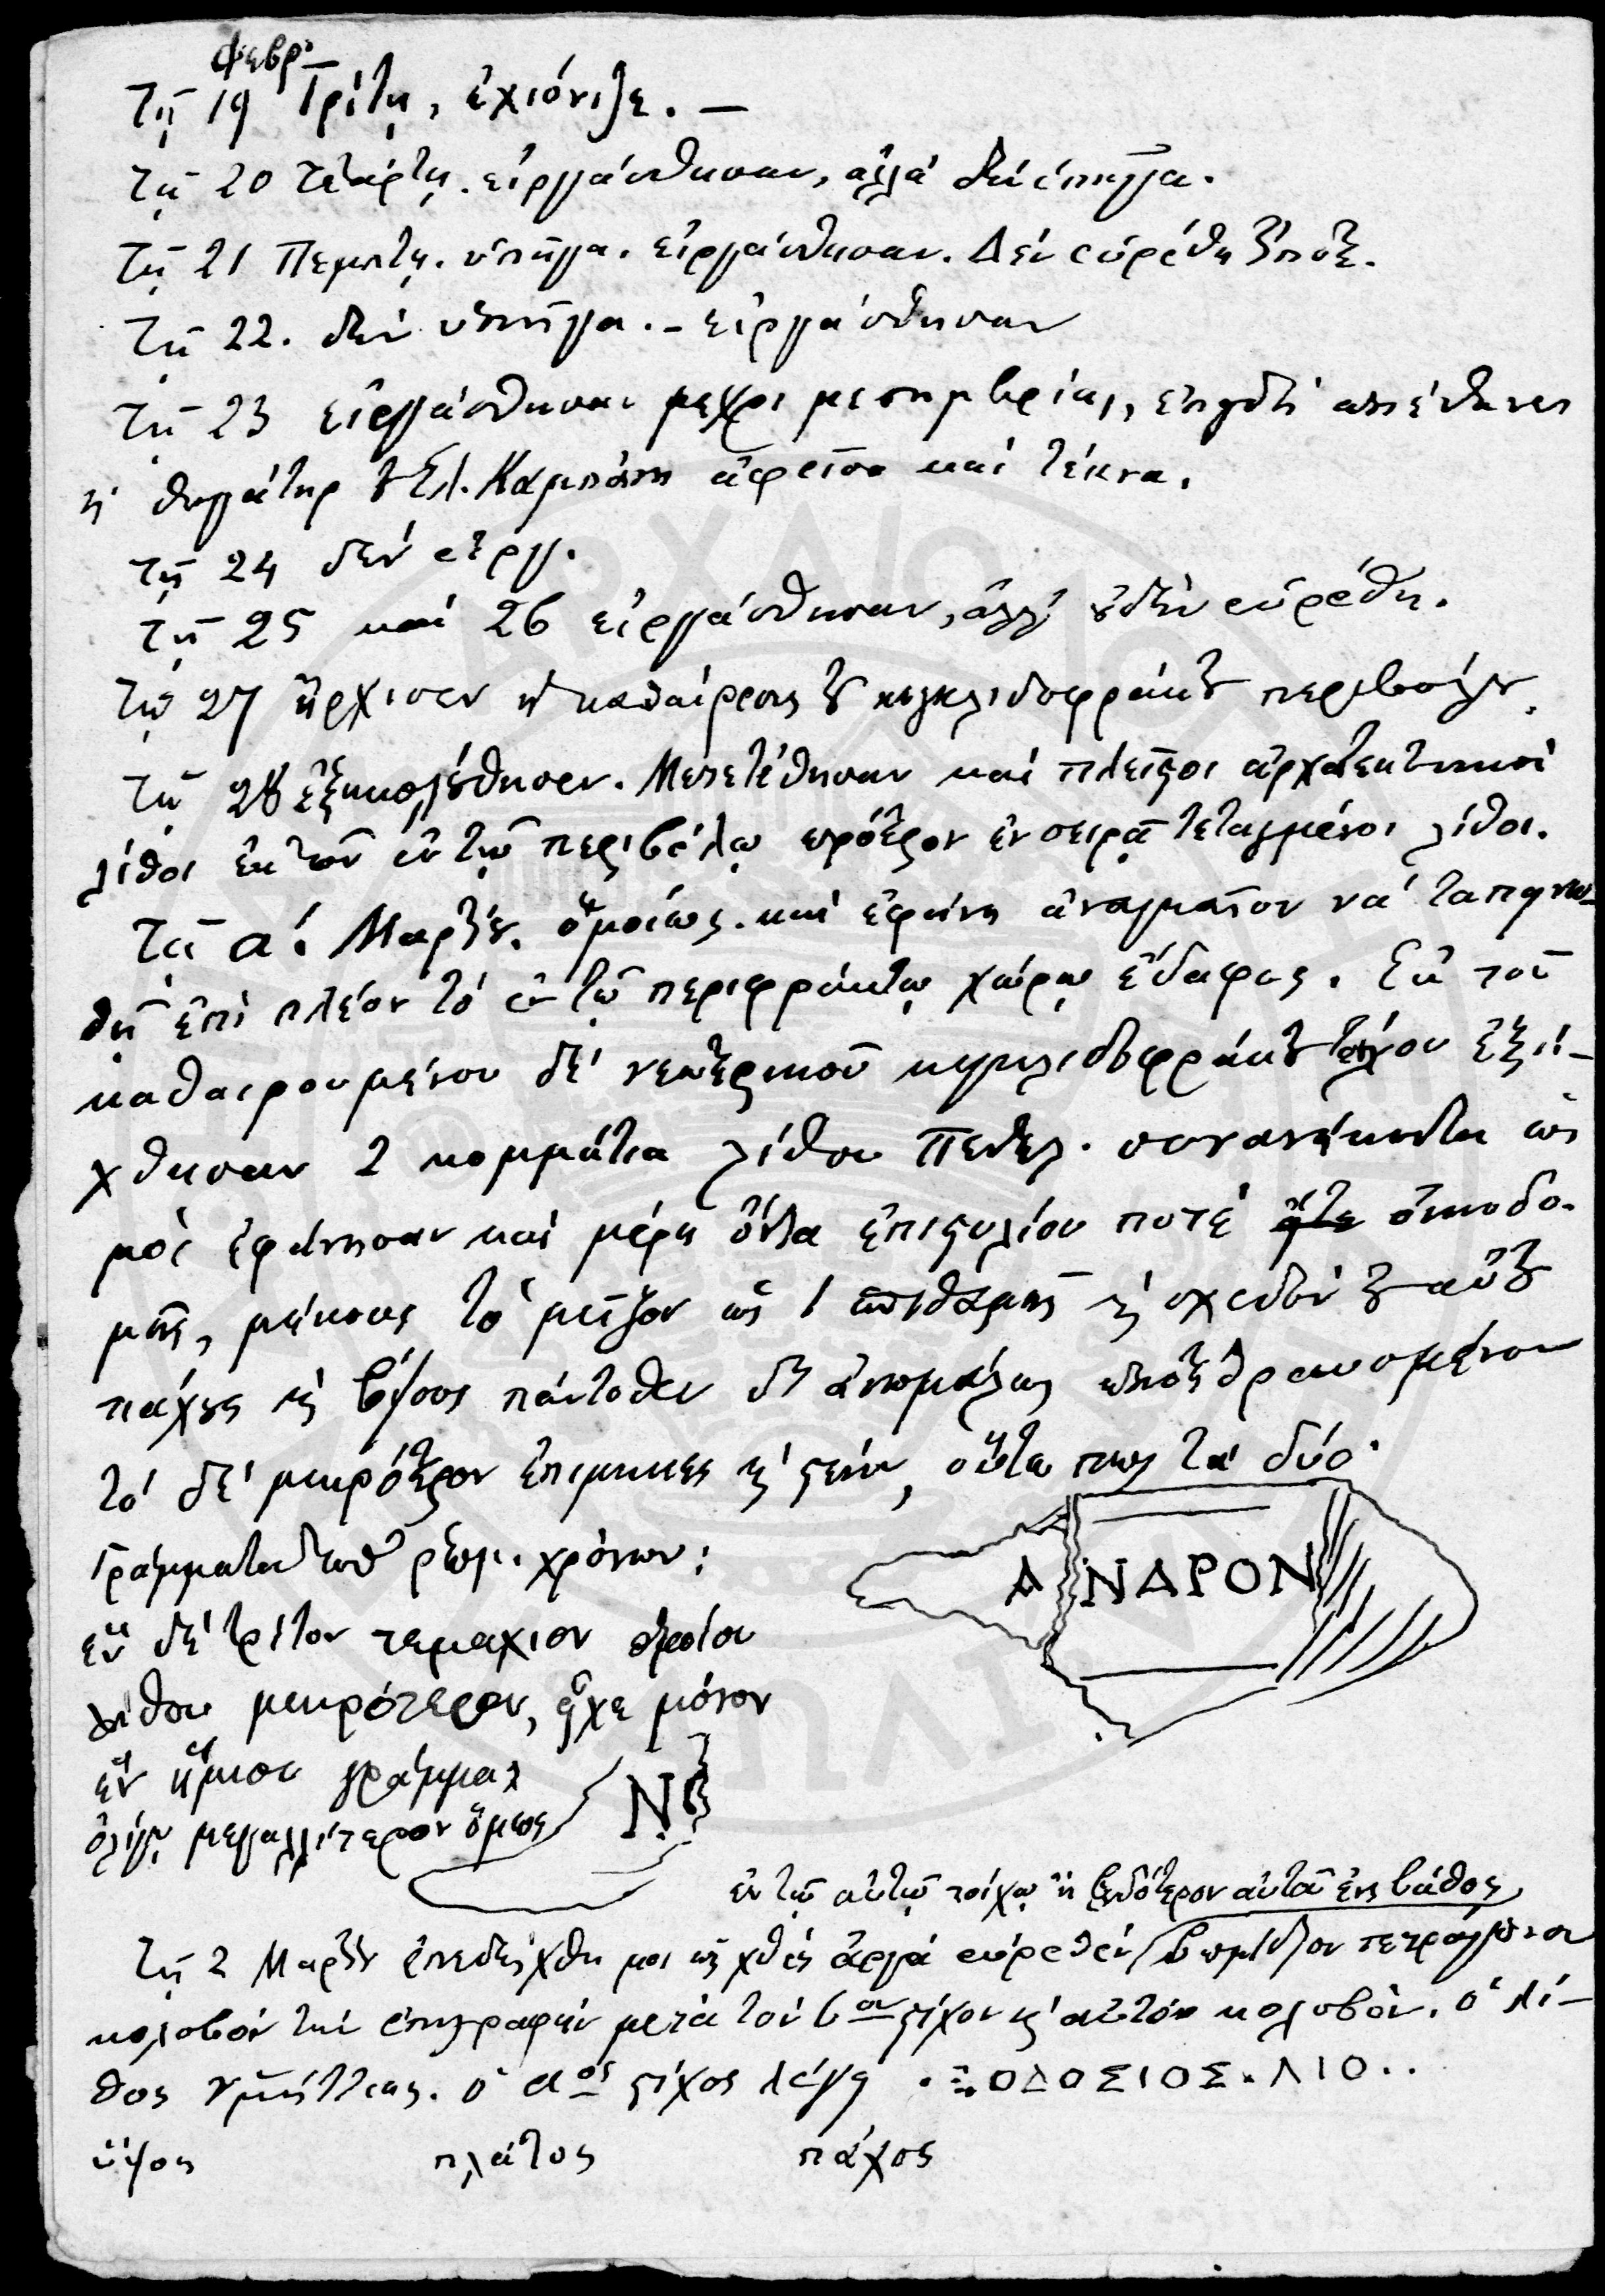 Φεβρ.
Τῇ 19 Τρίτῃ, ἐχιόνιζε. —
Τῇ 20 Τετάρτῃ. εἰργάσθησαν, ἀλλὰ δὲν ἐπῆγα.
Τῇ 21 Πέμπτῃ. ὑπῆγα. εἰργάσθησαν. Δὲν εὑρέθη
Τῇ 22. δὲν ὑπῆγα. – εἰργάσθησαν
Τῇ 23 εἰργάσθησαν μέχρι μεσημβρίας, ἐπειδὴ ἀπέθανεν
ἡ θυγάτηρ τοῦ Σλ. Καμπάνη ἀφεῖσα καὶ τέκνα.
τῇ 24 δὲν εἰργ.
τῇ 25 καὶ 26 εἰργάσθησαν, ἀλλ' οὐδὲν εὑρέθη.
Τῇ 27 ἤρχισεν ἡ καθαίρεσις τοῦ κιγκλιδοφράκτου περιβόλου.
Τῇ 28 ἐξηκολούθησεν. Μετετέθησαν καὶ πλεῖστοι ἀρχιτεκτονικοὶ
λίθοι ἐκ τῶν ἐν τῷ περιβόλῳ πρότερον ἐν σειρᾷ τεταγμένοι λίθοι.
Τῇ α΄. Μαρτίου. ὁμοίως. καὶ ἐφάνη ἀναγκαῖον νὰ ταπεινω-
θῇ ἐπὶ πλέον τὸ ἐν τῷ περιφράκτῳ χώρῳ ἔδαφος. Ἐκ τοῦ
καθαιρουμένου δὲ νεωτερικοῦ κιγκλιδοφράκτου τοίχου ἐξή-
χθησαν 2 κομμάτια λίθου Πεντελ. συνανήκοντα ὡς
μοὶ ἐφάνησαν καὶ μέρη ὄντα ἐπιστυλίου ποτὲ οἰκοδο-
μῆς, μήκους τὸ μεῖζον ὡς 1 σπιθαμῆς καὶ σχεδὸν τοῦ αὐτοῦ
πάχους καὶ ὕψους πάντοθεν δ' ἀνωμάλως ἀποτεθραυσμένον
τὸ δὲ μικρότερον ἐπίμηκες καὶ στενόν, οὕτω πως τὰ δύο·
Γράμματα τῶν ρωμ. χρόνων:
Α ΝΔΡΟΝ
ἓν δὲ τρίτον τεμάχιον ὁμοίου
λίθου μικρότερον, εἶχε μόνον
ἓν ἥμισυ γράμμα
ὀλίγῳ μεγαλλίτερον ὅμως
Ν
ἐν τῷ αὐτῷ τοίχῳ ἢ ἐνδότερον αὐτοῦ ἐς βάθος,
Τῇ 2 Μαρτίου ἐπεδείχθη μοι ὡς χθὲς ἀργὰ εὑρεθὲν βωμίδιον τετράγωνον
κολοβὸν τὴν ἐπιγραφὴν μετὰ τὸν 6ον στίχον καὶ αὐτὸν κολοβόν. ὁ λί-
θος Ὑμήττιος. ὁ αος στίχος λέγει . Ξ. ΟΔΟΣΙΟΣ. ΛΙΟ..
ὕψος πλάτος πάχος